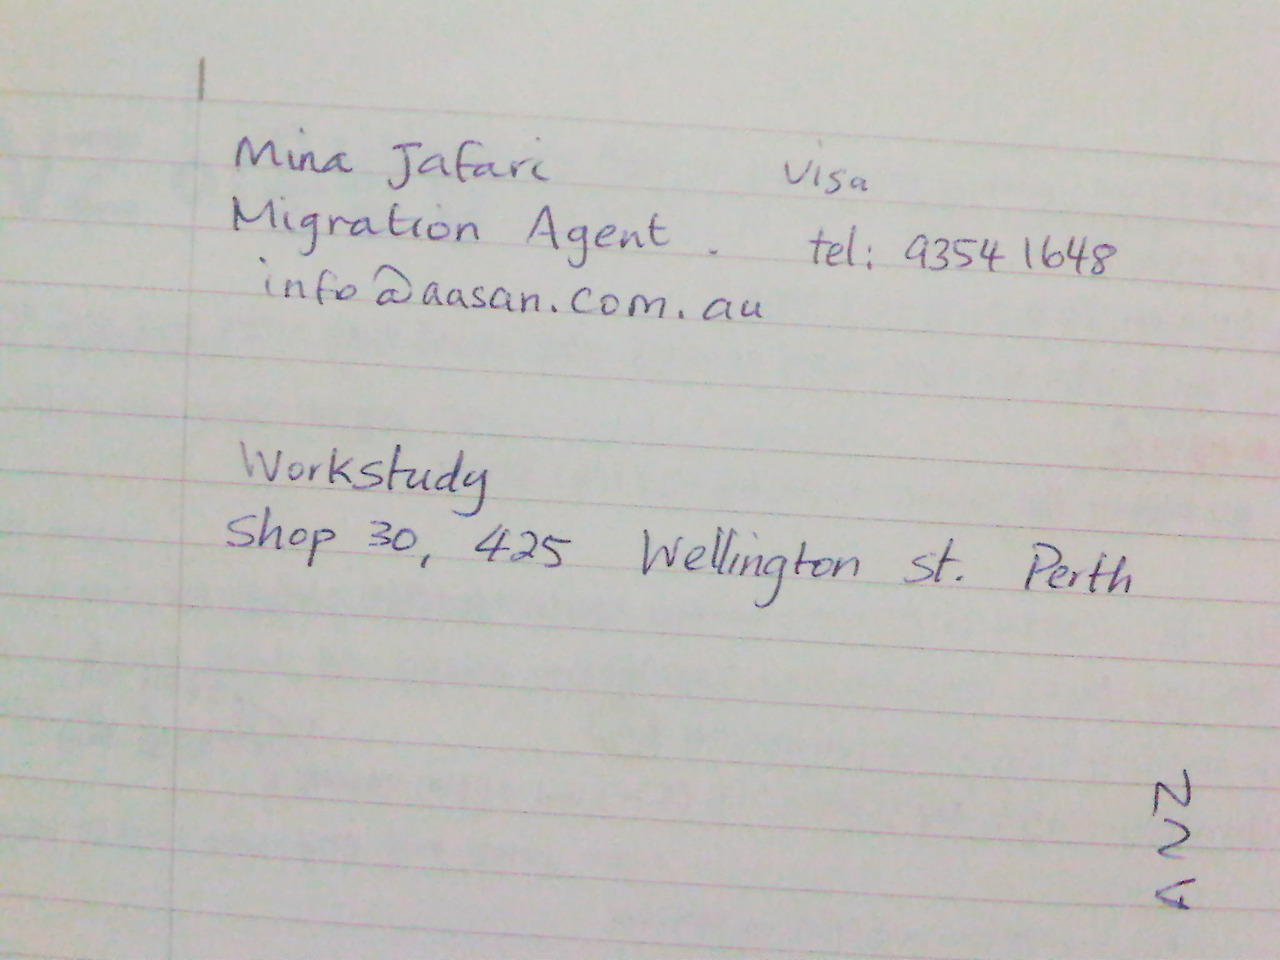 Mina Jafari visa
Migration Agent . tel: 9354 1648
info@aasan.com.au
Workstudy
Shop 30, 425 Wellington St. Perth